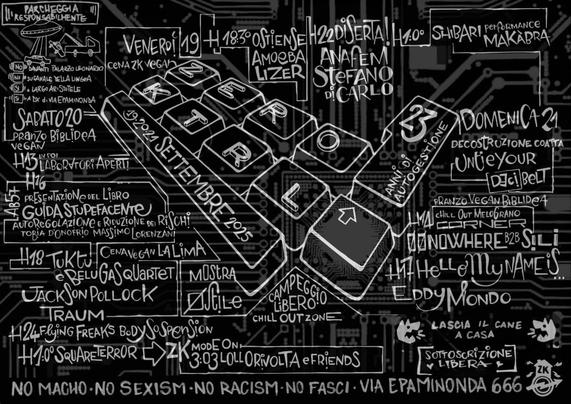 PARCHEGGIA
RESPONSABILMENTE
NO DAVANTI PALAZZO LEONARIO
LARGO ARISTIDE
A DX di VIA EPAMINONDA
VENERDÌ 19
CENA ZK VEGAN
H18:30 OSTIENSE
AMOEBA
LIZER
H22 DISERTA!
ANAFEM
STEFANO
Di CARLO
H1:00
SHIBARI PERFORMANCE
MAKÀBRA
ZERO
KTRL
23
ANNI DI
AUTOGESTIONE
19-20-21 SETTEMBRE 2025
SABATO 20
PRANZO BIBLIDE4
VEGAN
H13 LABORATORI APERTI
H16
LAB57
PRESENTAZIONE DEL LIBRO
GUIDA STUPEFACENTE
AUTOREGOLAZIONE e RIDUZIONE DEI RISCHI
TOBIA D'ONOFRIO MASSIMO LORENZANI
H18 TUKTU
e BELUGAS QUARTET
CENA VEGAN LA LIMA
JACKSON POLLOCK
TRAUM
H24 FLYING FREAKS BODY SOSPENSION
H1:00 SQUARE TERROR
ZK MODE ON
3:03 LOLLORIVOLTA e FRIENDS
MOSTRA
ØSTILE
CAMPEGGIO
LIBERO
CHILL OUT ZONE
DOMENICA 21
DECOSTRUZIONE COATTA
UNTIE YOUR
DECIBELT
PRANZO VEGAN BIBLIDE4
H14 CHILL OUT MELOGRANO
CORNER
NOWHERE B2B SiLi
H17 HELLO MY NAME IS...
EDDYMONDO
LASCIA IL CANE
A CASA
SOTTOSCRIZIONE
LIBERA
ZK
NO MACHO · NO SEXISM · NO RACISM · NO FASCI · VIA EPAMINONDA 666